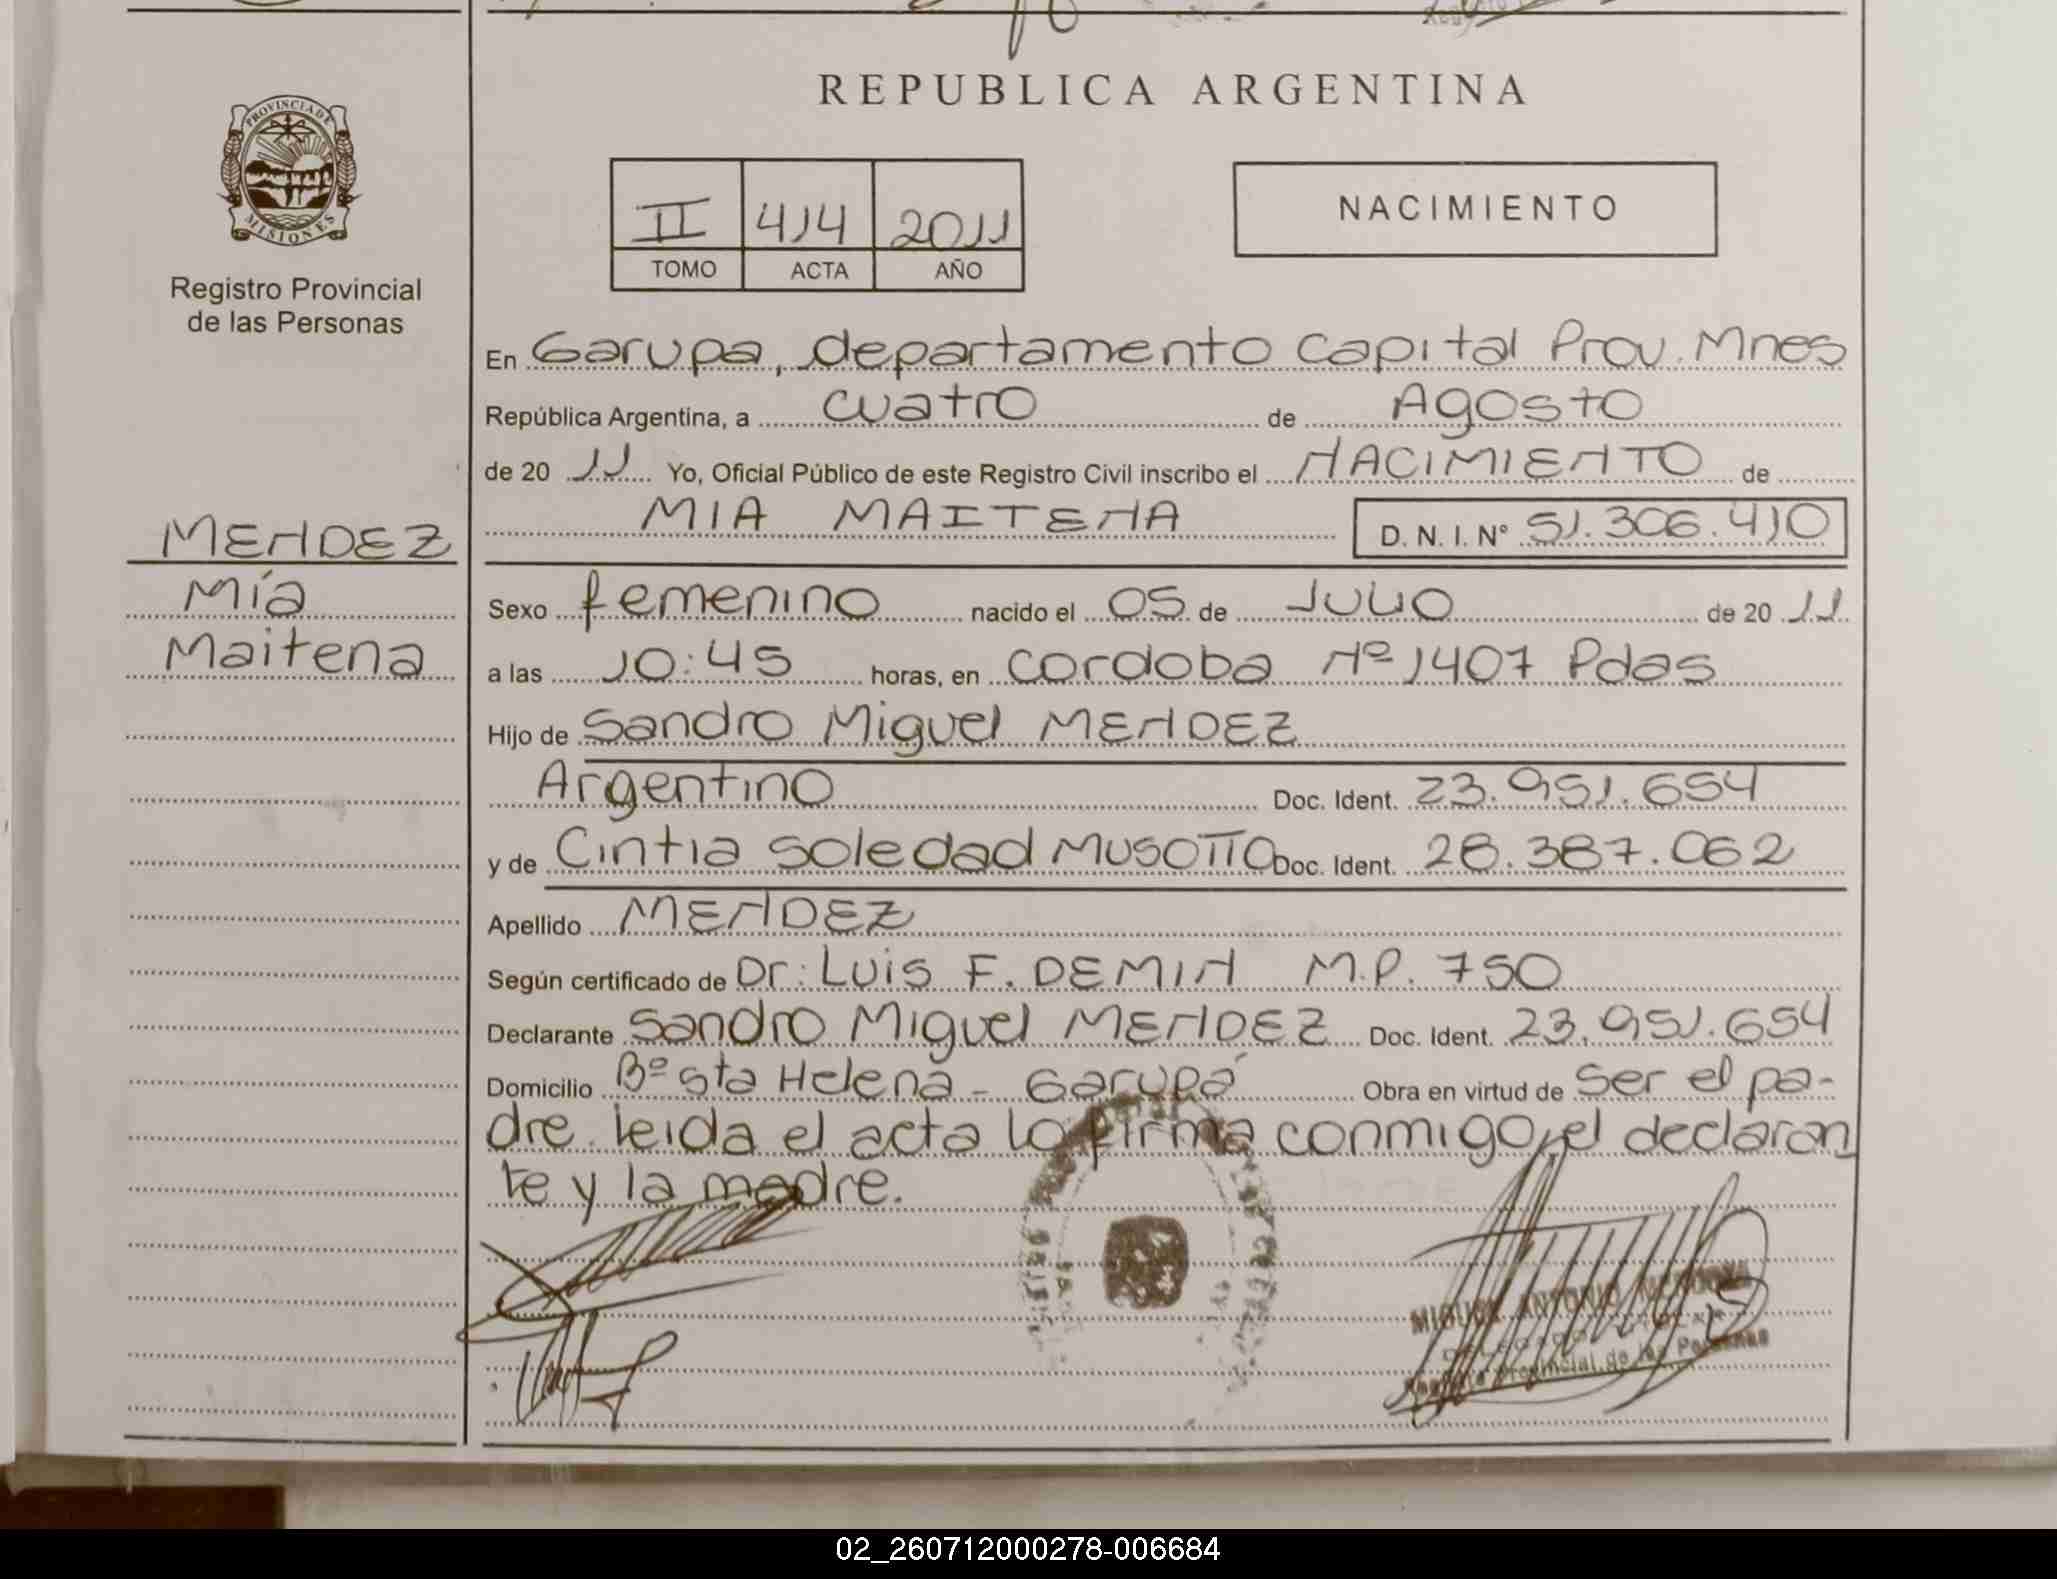 REPUBLICA ARGENTINA
PROVINCIA DE
MISIONES
Registro Provincial
de las Personas
II 414 2011
TOMO ACTA AÑO
NACIMIENTO
En Garupa, departamento Capital Prov. Mnes
República Argentina, a cuatro de Agosto
de 20 11 Yo, Oficial Público de este Registro Civil inscribo el NACIMIENTO de
MIA MAITENA D. N. I. Nº 51.306.410
MENDEZ
Mía
Maitena
Sexo femenino nacido el 05 de JULIO de 20 11
a las 10:45 horas, en Cordoba Nº 1407 Pdas
Hijo de Sandro Miguel MENDEZ
Argentino Doc. Ident. 23.951.654
y de Cintia Soledad MUSOTTO Doc. Ident. 28.387.062
Apellido MENDEZ
Según certificado de Dr: Luis F. DEMIN M.P. 750
Declarante Sandro Miguel MENDEZ Doc. Ident. 23.951.654
Domicilio Bº Sta Helena - Garupá Obra en virtud de Ser el pa-
dre. leida el acta lo firma conmigo, el declaran
te y la madre.
MIGUEL ANTONIO
DELEGADO
Registro Provincial de las Personas
02_260712000278-006684